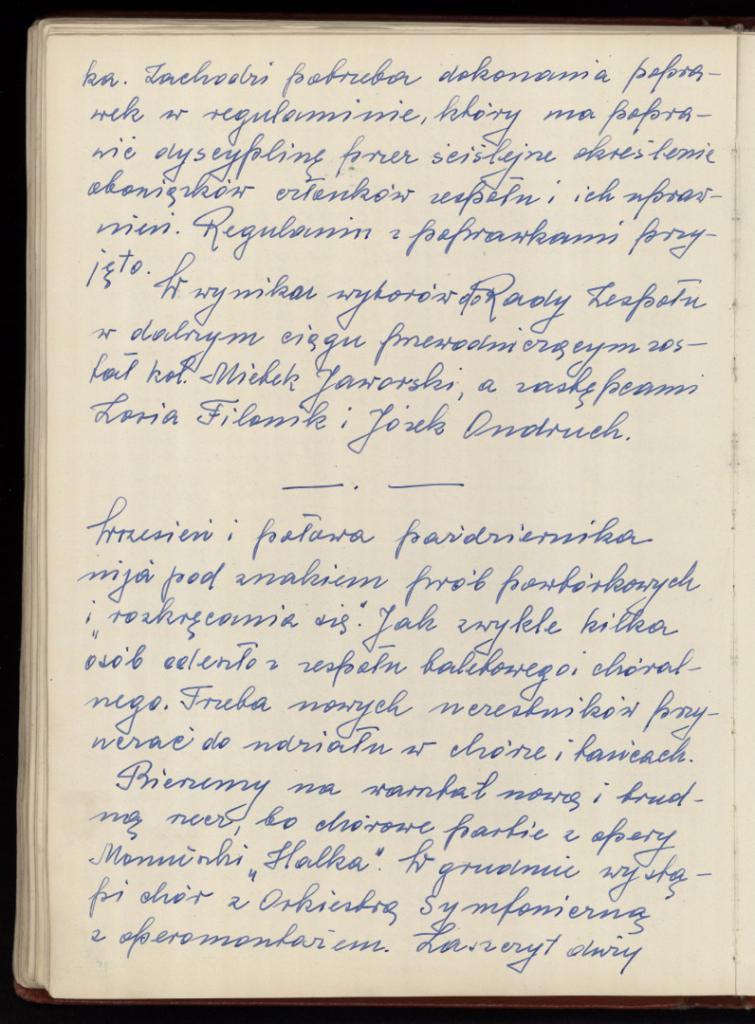 ka. Zachodzi potrzeba dokonania popra-
wek w regulaminie, który ma popra-
wić dyscyplinę przez ściślejsze określenie
obowiązków członków zespołu i ich upraw-
nień. Regulamin z poprawkami przy-
jęto.
W wyniku wyborów do Rady Zespołu
w dalszym ciągu przewodniczącym zos-
tał kol. Mietek Jaworski, a zastępcami
Zosia Filonik i Józek Ondruch.
— . —
Wrzesień i połowa października
mija pod znakiem prób powtórkowych
i "rozkręcania się". Jak zwykle kilka
osób odeszło z zespołu baletowego i chóral-
nego. Trzeba nowych uczestników przy-
uczać do udziału w chórze i tańcach.
Bierzemy na warsztat nową i trud-
ną rzecz, bo chórowe partie z opery
Moniuszki „Halka". W grudniu wystą-
pi chór z Orkiestrą Symfoniczną
z operomontażem. Zaszczyt duży